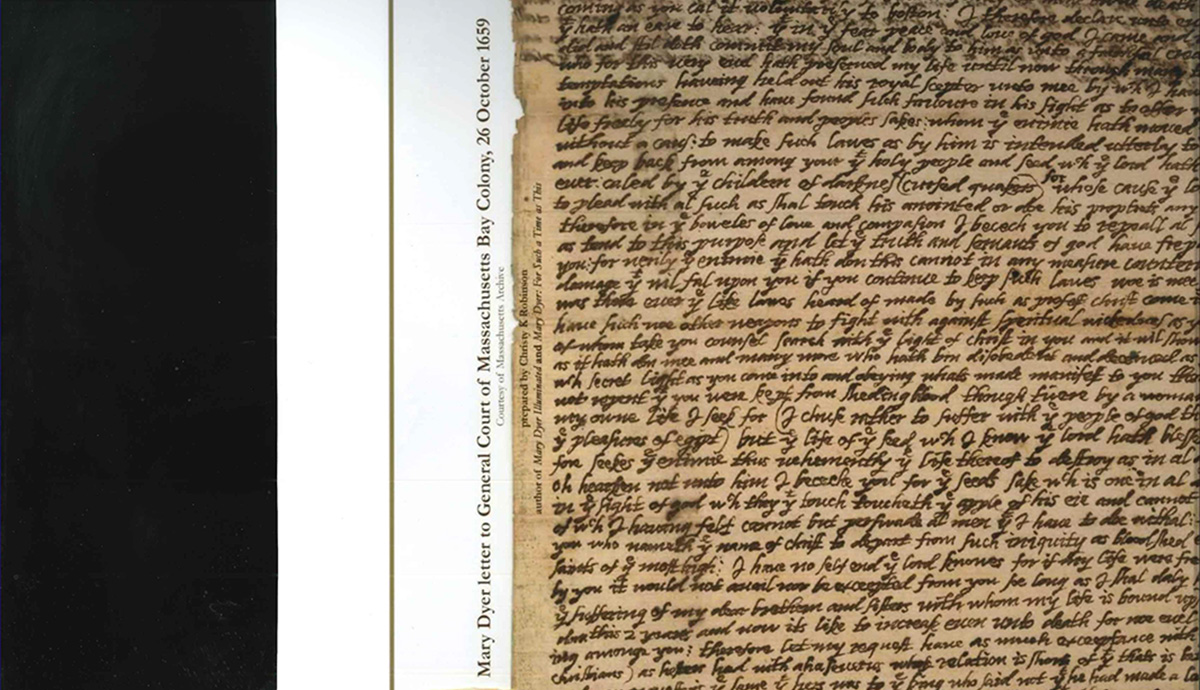 Mary Dyer letter to General Court of Massachusetts Bay Colony, 26 October 1659
Courtesy of Massachusetts Archive
prepared by Christy K Robinson
author of Mary Dyer Illuminated and Mary Dyer: For Such a Time as This
coming as you cal it voluntarily to boston: I therefore declare unto
yt hath an eare to hear: yt in ye fear peace and love of god I came
did and stil doth committ my soul and body to him as unto a faithful
who for this very end hath preserued my life until now through many
temptations haveing held out his royal scepter unto mee by wh I have
into his presence and have found such favoure in his sight as to offer
life freely for his truth and peoples sakes: whom ye enimie hath moved
without a caus: to make such lawes as by him is intended utterlay to
and keep back from among your ye holy people and seed wh ye lord hath
euer: caled by ye children of darknes (cursed quakers) for whose cause ye
to plead with al such as shal touch his anointed or doe his prophets any
therefore in ye boweles of love and compasion I beeech you to repeall al
as tend to this purpose and let ye truth and servants of god have free
you: for verily ye enimie yt hath don this cannot in any measure counter
damage yt wil fal upon you if you continue to keep such lawes woe is mee
was there ever ye like lawes heard of made by such as profess christ come
have such noe other weapons to fight with against spiritual wickednes as
of whom take you counsel search with ye light of christ in you and it wil show
as it hath don mee and many more who hath bin disobedient and deceived as
wh secret light as you come into and obeying whats made manifest to you
not repent yt you were kept from sheding blood though twere by a woman
my owne life I seek for (I chuse rather to suffer with ye people of god
ye pleasures of egypt) but ye life of ye seed wh I know ye lord hath
fore seekes ye enimie thus vehemently ye life thereof to destroy as in al
oh hearken not unto him I beseeke you for ye seeds sake wh is one in al
in ye sight of god wh they yt touch toucheth ye apple of his eie and cannot
of wh I having felt cannot but perswade al men yt I have to doe withal
you who nameth ye name of christ to depart from such iniquity as blood shed
saints of ye most high: I have no self end ye lord knowes for if my life were
by you it would not avail nor be excepted from you so long as I shal daly
ye suffering of my dear brethern and sisters with whom my life is bound
don this 2 years and now it is like to increas even unto death for noe evil
ing among you: therefore let my request have as much exceeptance with
christians) as hester had with ahasuerus whos relation is short of yt thats